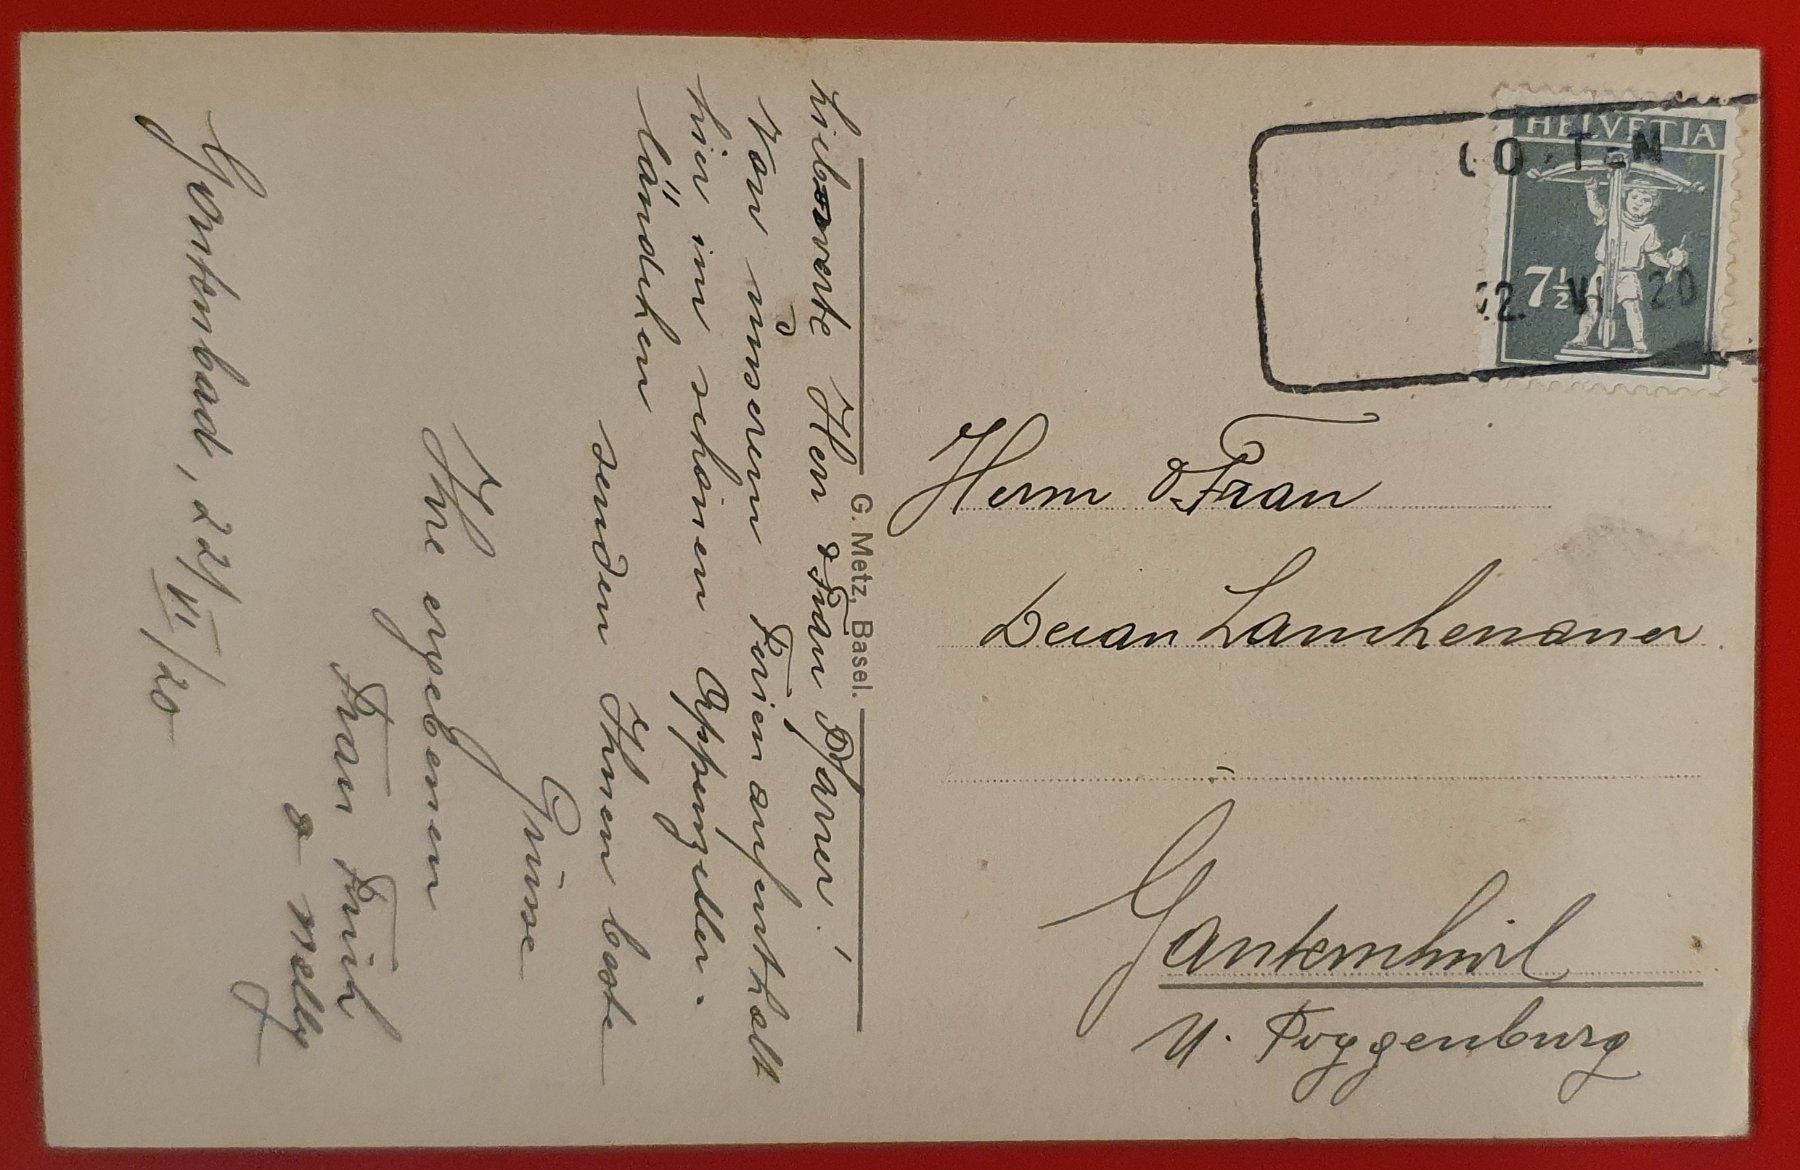 Liebwerte Herr & Frau Pfarrer!
Von unserem Ferienaufenthalt
hier im schönen Appenzeller-
ländchen
senden Ihnen beste
Grüsse
Ihre ergebenen
Frau Früh
& Nelly
Gontenbad, 22/VI/20
G. Metz, Basel.
HELVETIA
7½
GONTEN
22. VI. 20
Herrn & Frau
Decan Lauchenauer
Gantershwil
U. Toggenburg